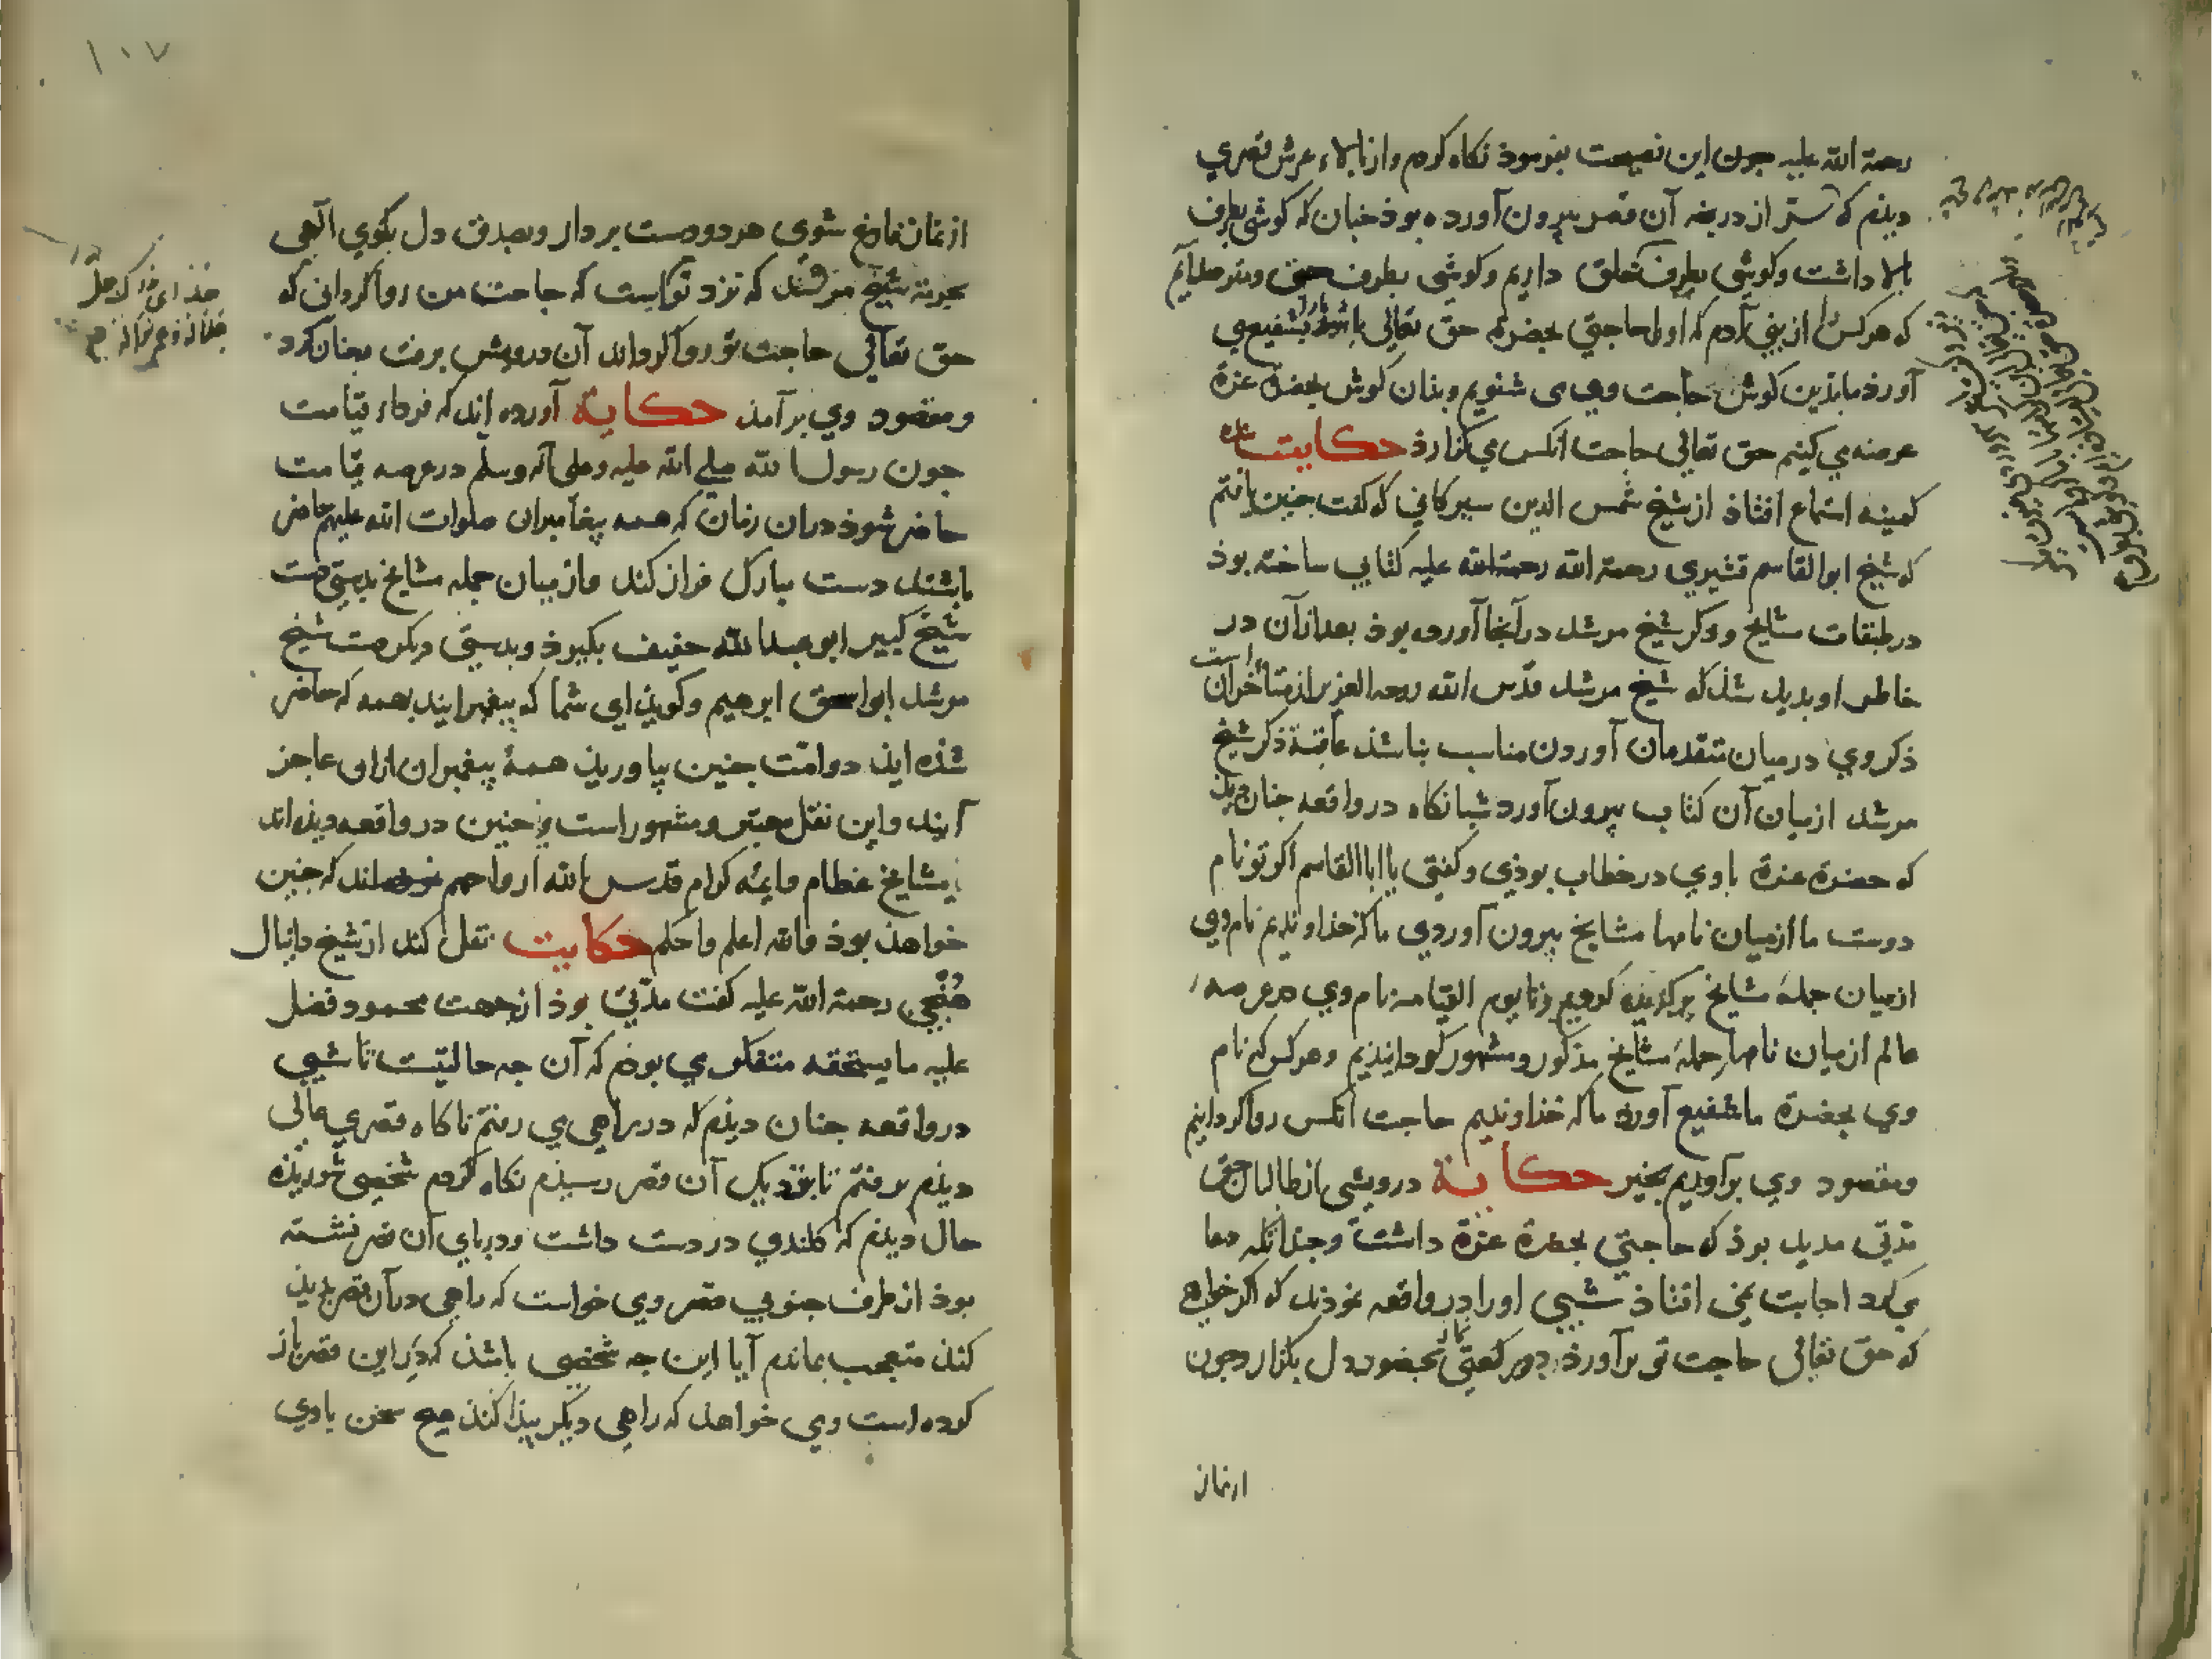 رحمة الله عليه جون این نصیحت بفرموذ نکاه کردم و از بالاء عرش قصری
دیذم که ستر از دریجه آن قصر بیرون آورده بوذ جنان که کوشی بطرف
بالا داشت و کوشی بطرف خلق داریم و کوشی بطرف حق
که هر کس از بنی آدم که او را حاجتی بحضرة حق تعالی باشذ بشفیع می
آورذ ما بذین کوش حاجت وی می شنویم و بذان کوش بحضرة عزة
عرضه می کنیم حق تعالی حاجت آنکس می کزارذ حکایت
کمینه استماع افتاذ از شیخ شمس الدین سیرکانی که کفت جنین یافتم
که شیخ ابوالقاسم قشیری رحمة الله رحمة الله علیه کتابی ساخته بوذ
در طبقات مشایخ و ذکر شیخ مرشد در آنجا آورده بوذ بعد از آن در
خاطر او بدید شذ که شیخ مرشد قدس الله روحه العزیز از متأخران است
ذکر وی در میان متقدمان آوردن مناسب نباشذ عاقبة ذکر شیخ
مرشد از میان آن کتاب بیرون آورد شبانکاه در واقعه جنان دید
که حضرة عزة با وی در خطاب بوذی و کفتی یا اباالقاسم اکر تو نام
دوست ما از میان نامها مشایخ بیرون آوردی ما که خداوندیم نام وی
از میان جملهٔ مشایخ برکزیذه کردیم و تا یوم القیامه نام وی در عرصهء
عالم از میان نامهاء جملهٔ مشایخ مذکور و مشهور کردانیذیم و هر کس که نام
وی بحضرة ما شفیع آورد ما که خذاوندیم حاجت آنکس روا کردانیم
و مقصود وی برآوریم بخیر حکایة درویشی از طالبان حق
مدتی مدید بوذ که حاجتی بحضرة عزة داشت و جندانکه دعا
می کرد اجابت نمی افتاذ شبی او را در واقعه نموذند که اکر خواهی
که حق تعالی حاجت تو برآورذ دو رکعتی نماز بحضور دل بکزار و جون
از نماز
۱۰۷
از نماز فارغ شوی هر دو دست بردار و بصدق دل بکوی الهی
بحرمة شیخ مرشد که نزد توأست که حاجت من روا کردانی که
حق تعالی حاجت تو روا کرداند آن درویش برفت بجنان کرد
و مقصود وی برآمذ حکایة آورده اند که فرداء قیامت
جون رسول الله صلی الله علیه و علی آله وسلم در عرصه قیامت
حاضر شوذ در ان زمان که همه پیغامبران صلوات الله علیهم حاضر
باشند دست مبارک فراز کند و از میان جمله مشایخ بدستی دست
شیخ کبیر ابو عبدالله خفیف بکیرذ و بدستی دیکر دست شیخ
مرشد ابو اسحق ابرهیم و کویذ ای شما که پیغمبرانید بهمه که حاضر
شذه ایذ دو امت جنین بیاوریذ همهٔ پیغمبران از ان عاجز
آیند و این نقل معتبر و مشهور است و جنین در واقعه دیذه اند
مشایخ عظام و ایمه کرام قدس الله ارواحهم اند که جنین
خواهذ بوذ والله اعلم و احکم حکایت نقل کند از شیخ دانیال
خنجی رحمة الله علیه کفت مدتی بوذ از جهت محمود فضل
علیه ما یستحقه متفکر می بوذم که آن جه حالتیست تا شبی
در واقعه جنان دیذم که در راهی می رفتم ناکاه قصری عالی
دیذم برفتم تا بنزدیک آن قصر رسیذم نکاه کردم شخصی شوریذه
حال دیذم که کلندی در دست داشت و در پای آن قصر نشسته
بوذ از طرف جنوبی قصر وی خواست که راهی در آن قصر بدید
کنذ متعجب بماندم آیا این جه شخصی باشذ که در این قصر باز
کرده است وی خواهذ که راهی دیکر پیذا کنذ هیچ سخن با وی